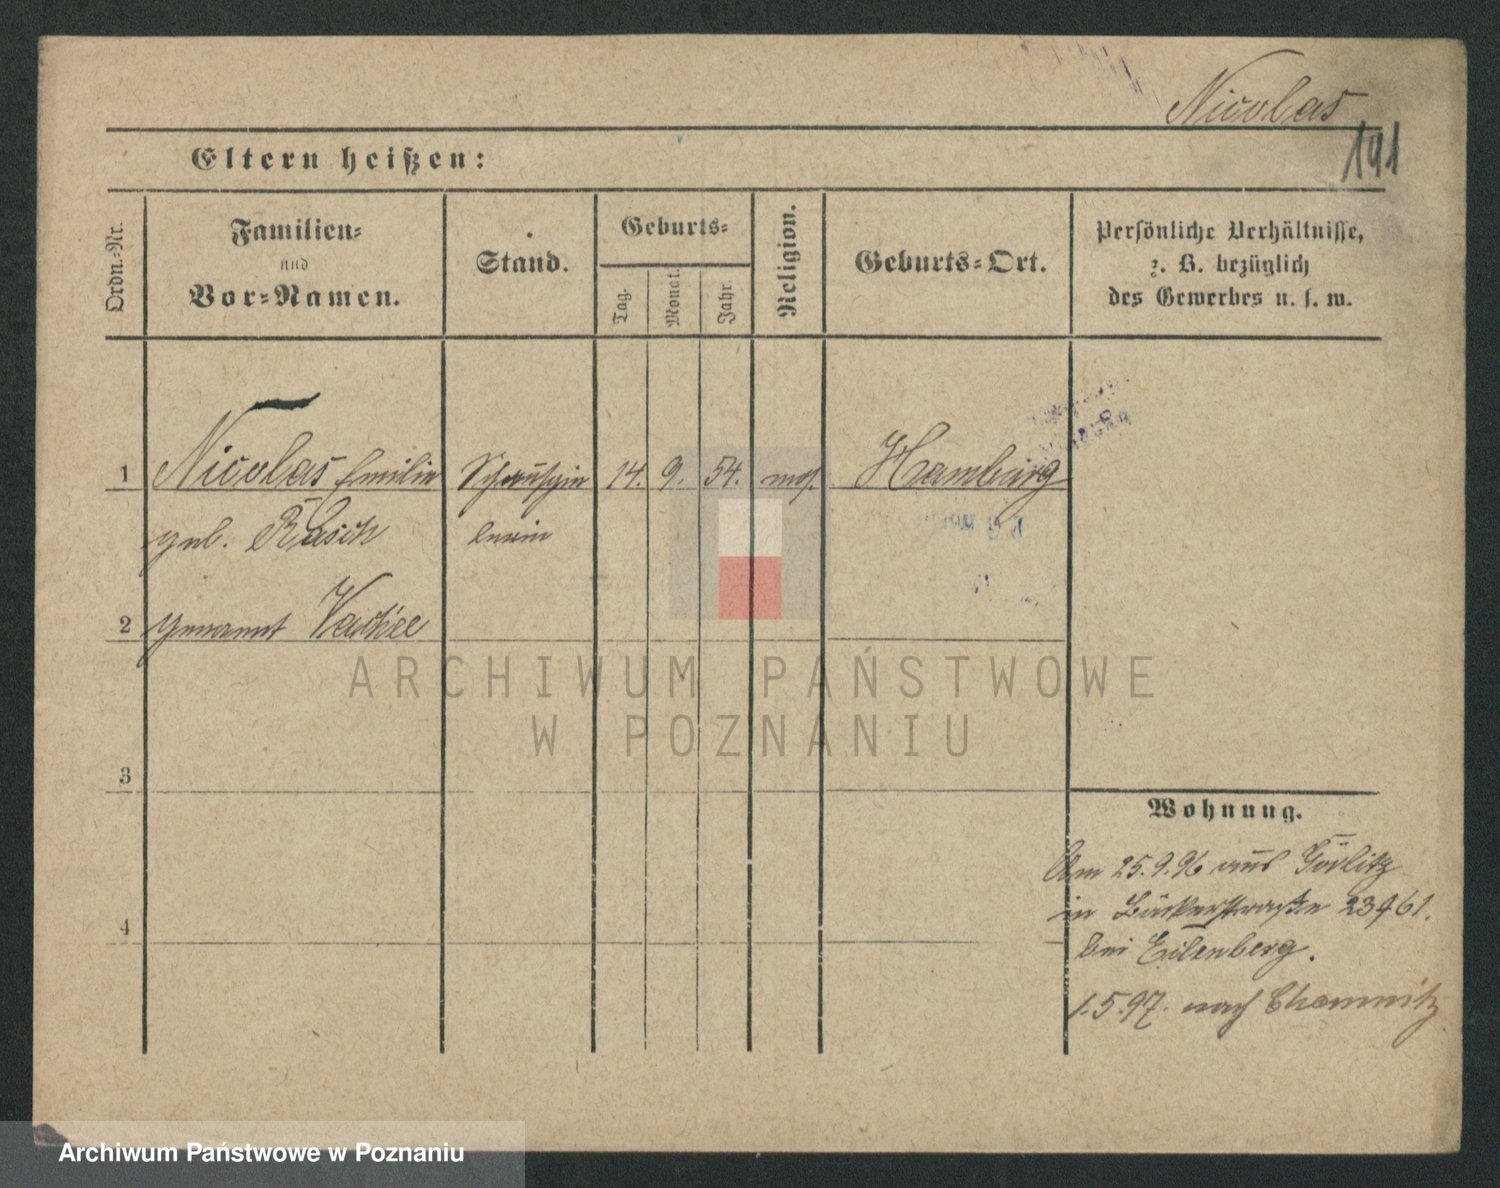 Nicolas
191
Eltern heißen:
Ordn.-Nr.
Familien-
und
Vor-Namen.
Stand.
Geburts-
Tag.
Monat.
Jahr.
Religion.
Geburts-Ort.
Persönliche Verhältnisse,
z. B. bezüglich
des Gewerbes u. s. w.
1 Nicolas Emilie Schauspie 14. 9. 54. mos. Hamburg
geb. Rasch lerin
2 genannt
ARCHIWUM PAŃSTWOWE
W POZNANIU
3
Wohnung.
Am 25.9.96 aus Görlitz
4 in Bäckerstraße 23
bei Eilenberg.
1.5.97. nach Chemnitz
Archiwum Państwowe w Poznaniu